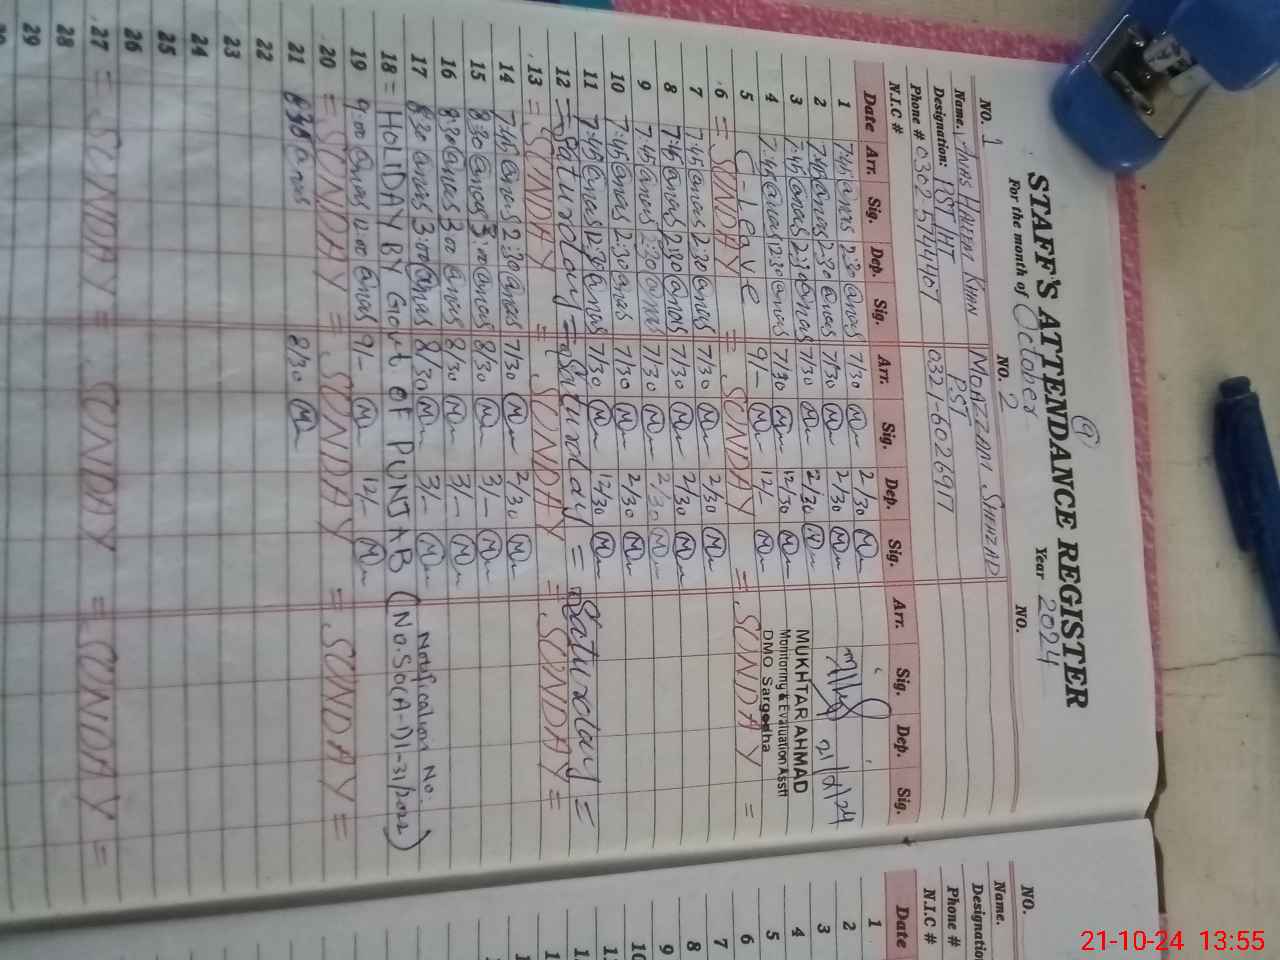 STAFF'S ATTENDANCE REGISTER
For the month of October Year 2024
NO. 1 NO. 2 NO.
Name. Anas Haleem Khan Moazzam Shehzad
Designation: PST IHT PST
Phone # 0302 5744407 0321-6026917
N.I.C #
Date Arr. Sig. Dep. Sig. Arr. Sig. Dep. Sig. Arr. Sig. Dep. Sig.
1 7:45 anas 2:30 anas 7/30 2/30
2 7:45 anas 2:30 anas 7/30 2/30 21/10/24
3 7:45 anas 2:30 anas 7/30 2/30 MUKHTAR AHMAD
4 7:45 anas 12:30 anas 7/30 12/30 Monitoring & Evaluation Asstt
5 C-Leave 9/- 12/- DMO Sargodha
6 = SUNDAY = SUNDAY = SUNDAY =
7 7:45 anas 2:30 anas 7/30 2/30
8 7:45 anas 2:30 anas 7/30 2/30
9 7:45 anas 2:30 anas 7/30 2/30
10 7:45 anas 2:30 anas 7/30 2/30
11 7:45 anas 12:30 anas 7/30 12/30
12 = Saturday = Saturday = Saturday =
13 = SUNDAY = SUNDAY = SUNDAY =
14 7:45 anas 2:30 anas 7/30 2/30
15 8:30 anas 3:00 anas 8/30 3/-
16 8:30 anas 3:00 anas 8/30 3/-
17 8:30 anas 3:00 anas 8/30 3/- Notification No.
18 = HOLIDAY BY Govt of PUNJAB (No.SO(A-I)1-31/2022)
19 9:00 anas 12:00 anas 9/- 12/-
20 = SUNDAY = SUNDAY = SUNDAY =
21 8:30 anas 8/30
22
23
24
25
26
27 = SUNDAY = SUNDAY = SUNDAY =
28
29
NO.
Name.
Designation
Phone #
N.I.C #
Date
1
2
3
4
5
6
7
8
9
10
21-10-24 13:55